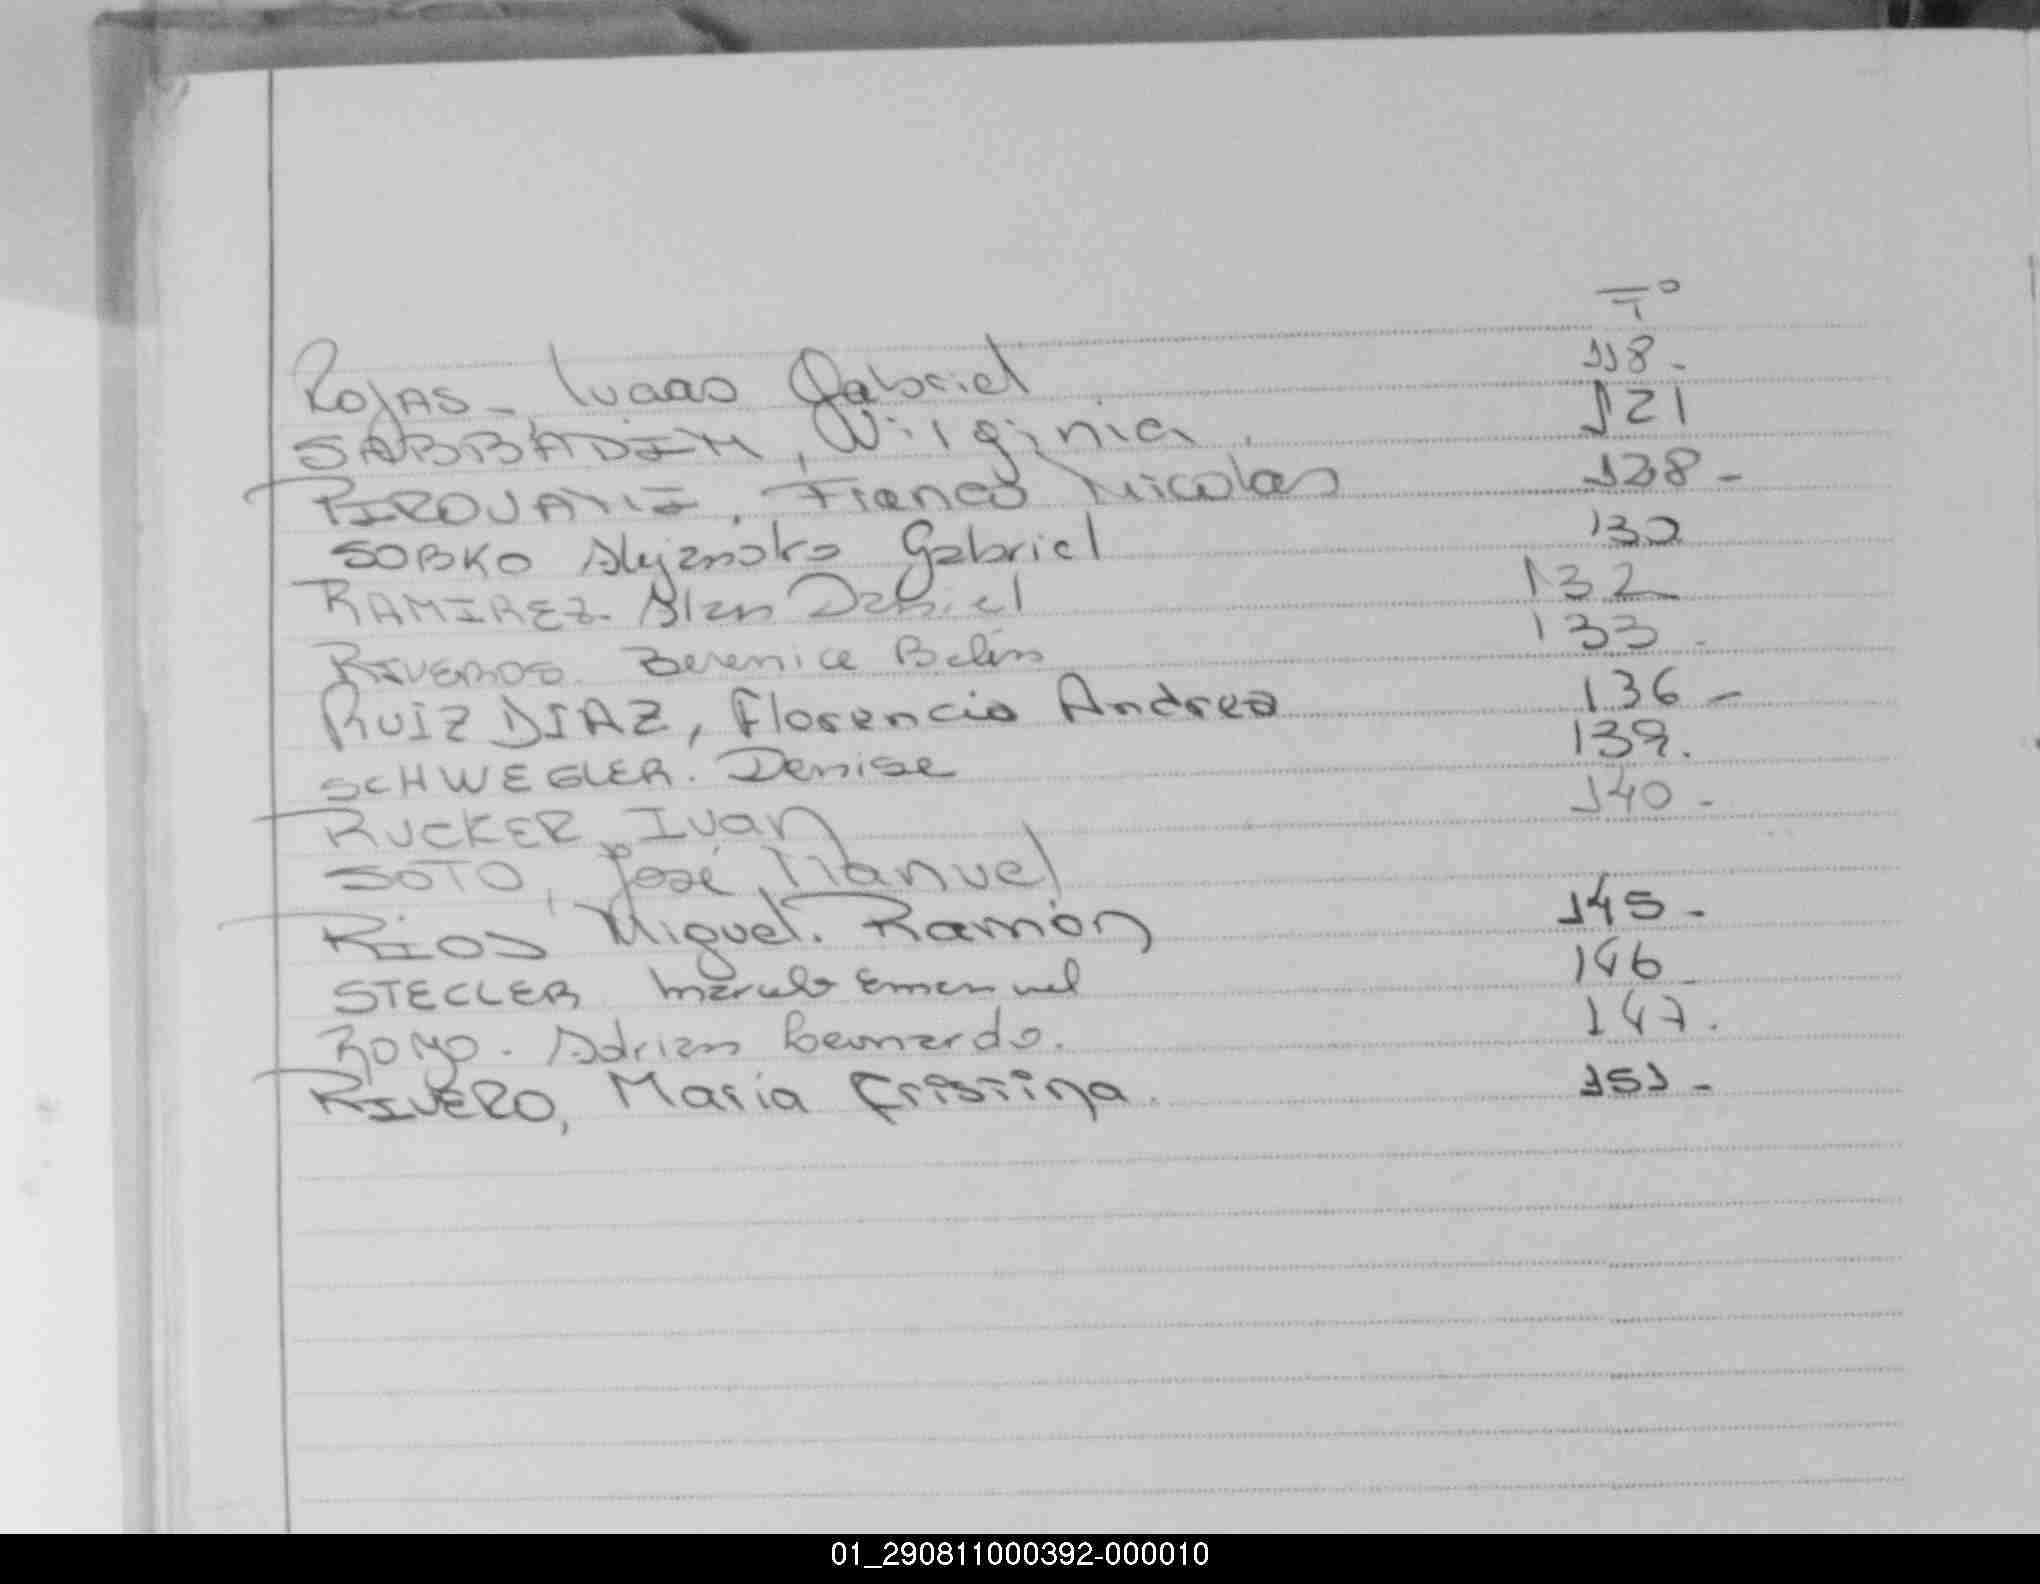 Fº
ROJAS - Lucas Gabriel 118.-
SABBADIN, Virginia. 121
PIROVANI, Franco Nicolas 128-
SOBKO Alejandro Gabriel 130
RAMIREZ. Alan Daniel 132
RIVEROS. Berenice Belén 133.
RUIZ DIAZ, Florencia Andrea 136-
SCHWEGLER. Denise 139.
RUCKER, Ivan 140-
SOTO, José Manuel
RIOS Miguel. Ramón 145-
STECLER Marcelo Emanuel 146
ROMO. Adrian Bernardo. 147.
RIVERO, María Cristina. 151-
01_290811000392-000010